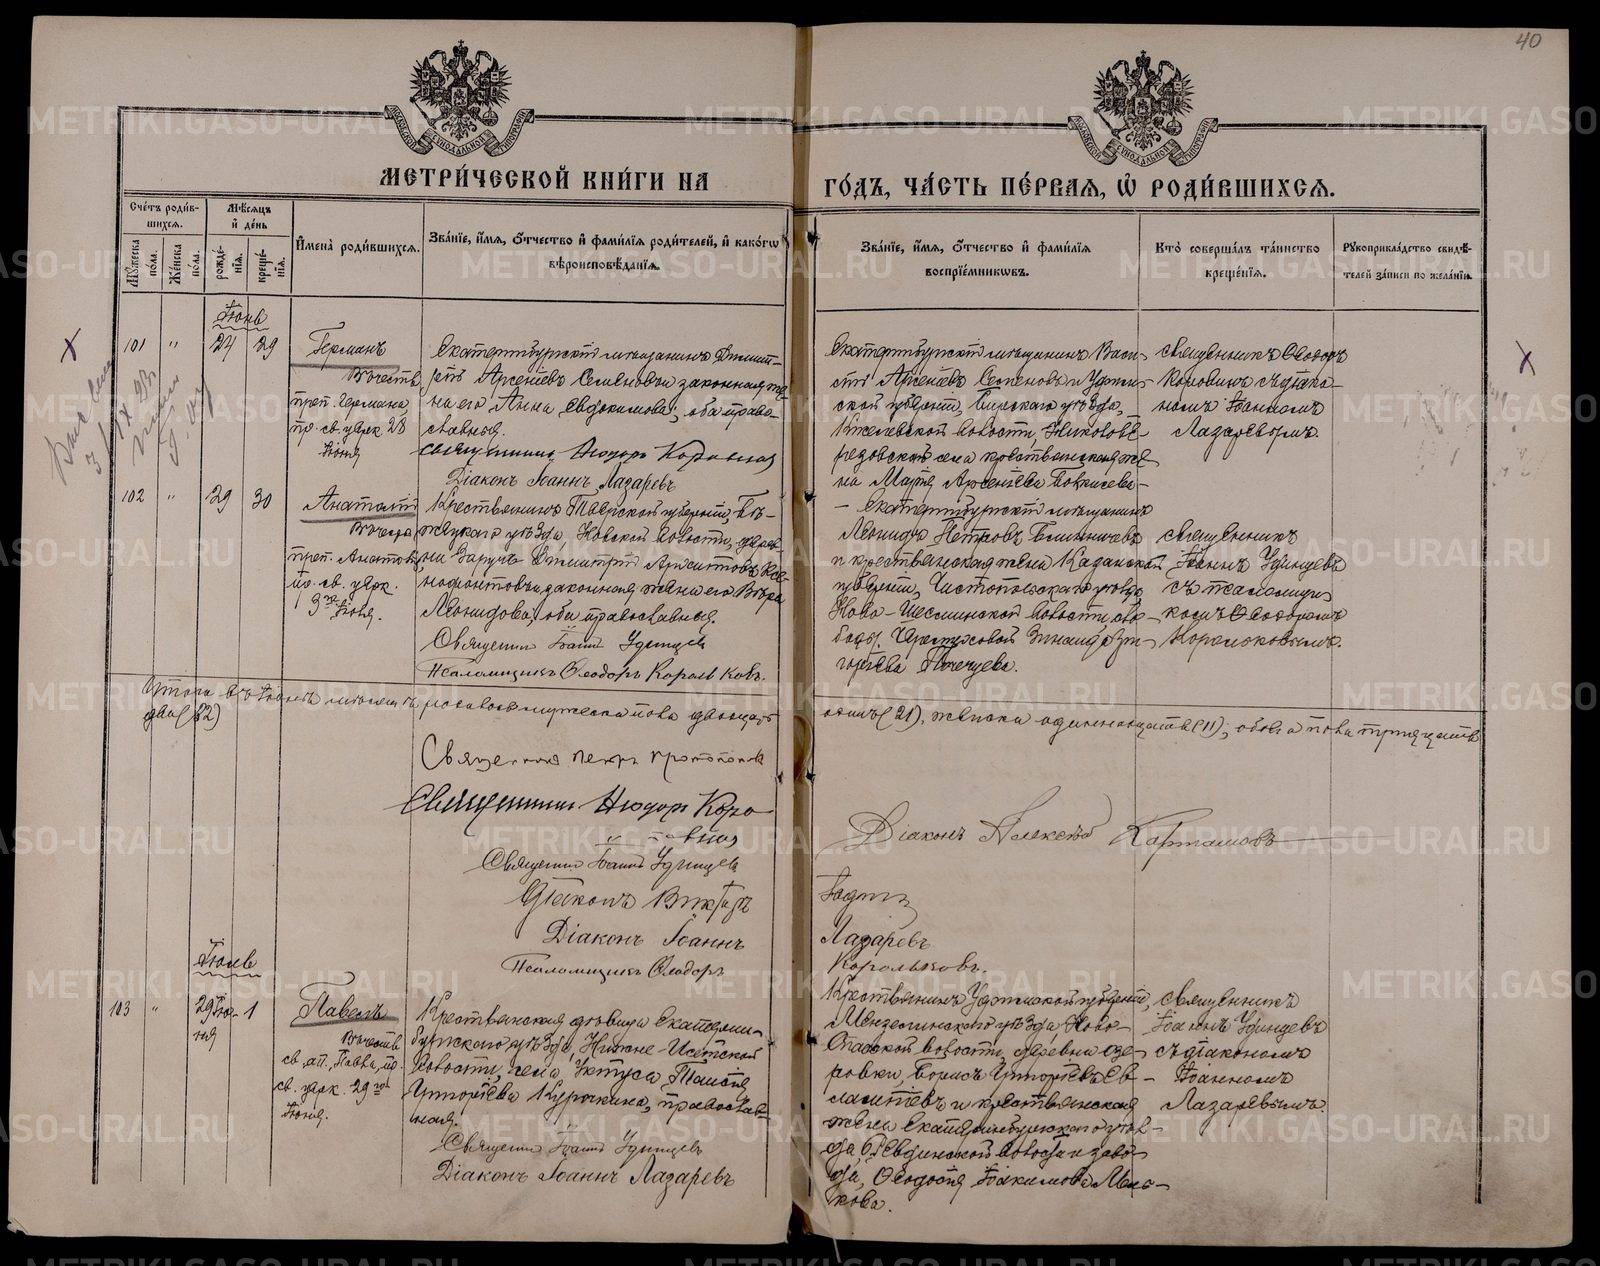 40
МЕТРИ́ЧЕСКОЙ КНИ́ГИ НА
ГО́ДЪ, ЧА́СТЬ ПЕ́РВАѦ, Ѽ РОДИ́ВШИХСѦ.
Сче́тъ роди́в-
шихсѧ.
Мѣ́сѧцъ
и҆ де́нь
Мꙋ́жеска
по́ла.
Же́нска
по́ла.
рожде́-
нїѧ.
креще́-
нїѧ.
И҆мена̀ роди́вшихсѧ.
Зва́нїе, и҆́мѧ, ѻ҆́тчество и҆ фами́лїѧ роди́телей, и҆ како́гѡ
вѣроисповѣ́данїѧ.
Зва́нїе, и҆́мѧ, ѻ҆́тчество и҆ фами́лїѧ
воспрїе́мникѡвъ.
Кто̀ соверша́лъ та́инство
креще́нїѧ.
Рꙋкоприкла́дство свидѣ́-
телей за́писи по жела́нїю.
Іюнь
101 " 24 29
Германъ
В честь
преп. Германа,
пр. св. церк. 28
Іюня
Екатеринбургскій мѣщанинъ Димит-
рій Арсеніевъ Семеновъ и законная же-
на его Анна Евдокимова; оба право-
славные.
Священник Ѳеодоръ Коровинъ
Діаконъ Іоаннъ Лазаревъ
Екатеринбургскій мѣщанинъ Васи-
лій Арсеніевъ Семеновъ и Уфим-
ской губерніи, Бирскаго уѣзда,
волости, Николо-Бе-
резовскаго села крестьянская же-
на Марія Арсеніева
священникъ Ѳеодоръ
Коровинъ съ діако-
номъ Іоанномъ
Лазаревымъ.
102 " 29 30
Анатолій
В честь
преп. Анатолія,
пр. св. церк.
3го Іюля.
Крестьянинъ Тверской губерніи, Бѣ-
жецкаго уѣзда, волости, дерев-
ни Заручье Димитрій Аристовъ Ксе-
нофонтовъ и законная жена его Вѣра
Леонидова, оба православные.
Священник Іоаннъ Удинцевъ
Псаломщикъ Ѳеодоръ Корольковъ.
Екатеринбургскій мѣщанинъ
Леонидъ Петровъ
и крестьянская жена Казанской
губерніи, Чистопольскаго уѣзда,
Ново-Шешминской волости, сло-
боды Зинаида Гри-
горьева
Священникъ
Іоаннъ Удинцевъ
съ псаломщи-
комъ Ѳеодоромъ
Корольковымъ.
Итого въ Іюнѣ мѣсяцѣ родилось мужеска пола двадцать
одинъ (21), женска одиннадцать (11); обоего пола тридцать
два (32)
Священник Петръ Протопоповъ
Священник Ѳеодоръ Коро-
винъ
Священник Іоаннъ Удинцевъ
Діаконъ Алексѣй Карташовъ
Діаконъ Викторъ
Діаконъ Іоаннъ
Лазаревъ
Псаломщикъ Ѳеодоръ
Корольковъ.
Іюль
103 " 29 Ію-
ня 1
Павелъ
В честь
св. ап. Павла, пр.
св. церк. 29го
Іюня.
Крестьянская дѣвица Екатерин-
бургскаго уѣзда, Нижне-Исетской
волости, села Уктуса Таисія
Григорьева Курочкина, православ-
ная.
Священник Іоаннъ Удинцевъ
Діаконъ Іоаннъ Лазаревъ
Крестьянинъ Уфимской губерніи,
Мензелинскаго уѣзда, Ново-
Спасской волости, деревни Озе-
ровки, Борисъ Григорьевъ Ев-
лантіевъ и крестьянская
жена Екатеринбургскаго уѣз-
да, Ревдинской волости и заво-
да, Ѳеодосія Іоакимова
священникъ
Іоаннъ Удинцевъ
съ діакономъ
Іоанномъ
Лазаревымъ.
METRIKI.GASO-URAL.RU